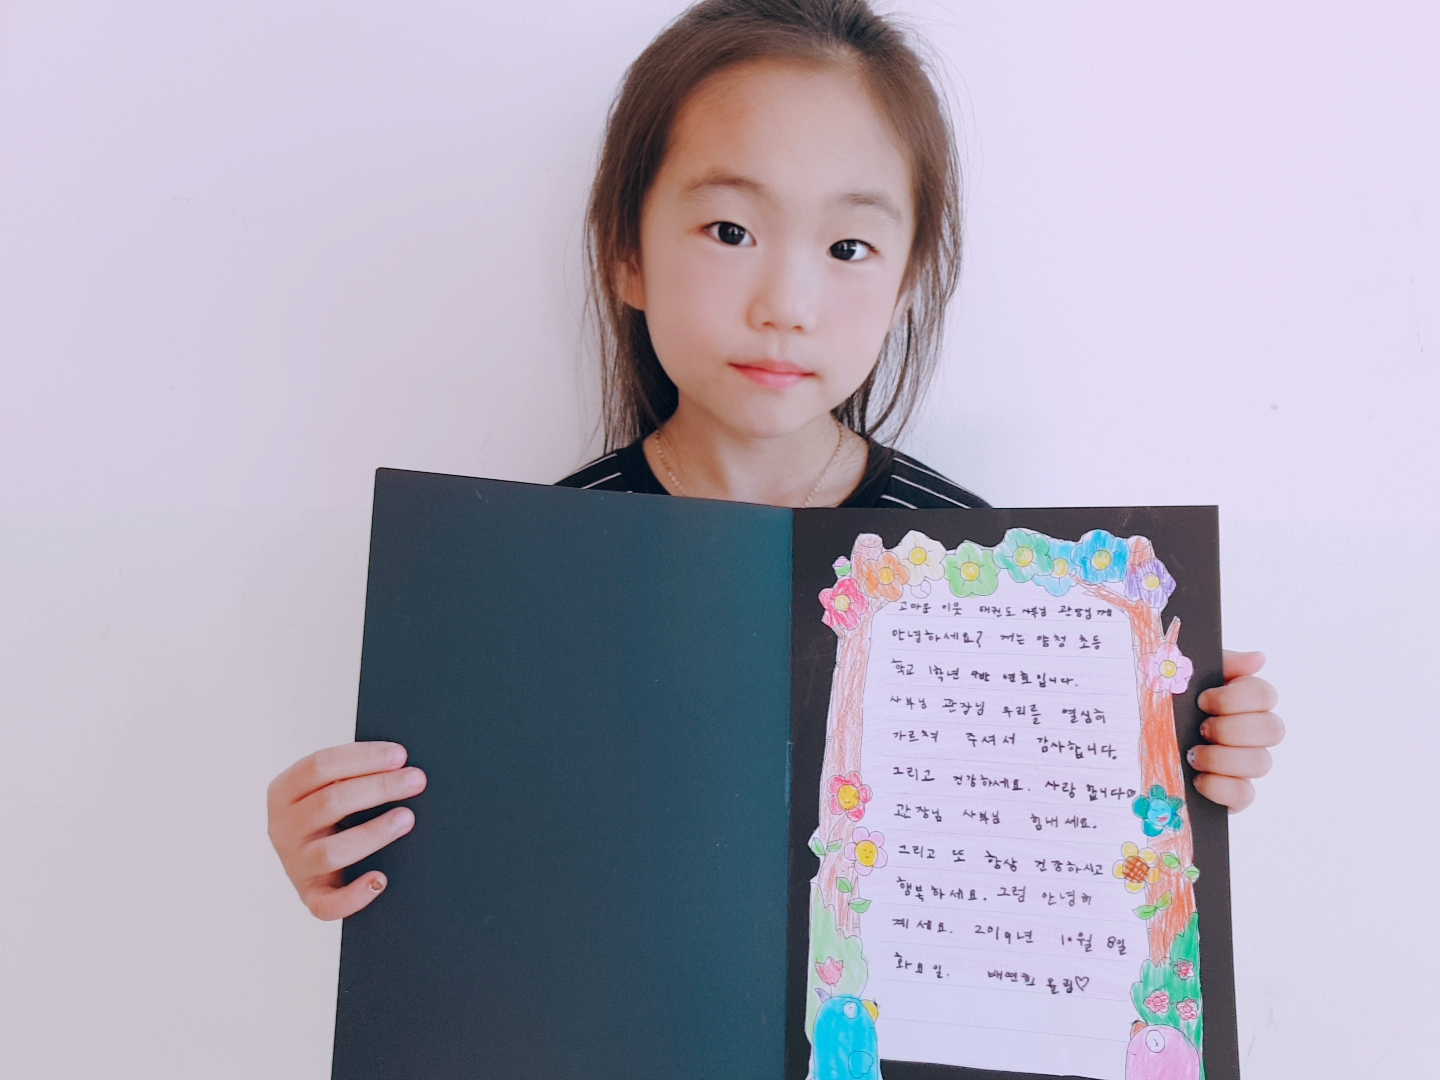 고마운 이웃 태권도 사부님 관장님께
안녕하세요? 저는 암청 초등
학교 1학년 9반 연희입니다.
사부님 관장님 우리를 열심히
가르쳐 주셔서 감사합니다.
그리고 건강하세요. 사랑 합니다♡
관장님 사부님 힘내세요.
그리고 또 항상 건강하시고
행복하세요. 그럼 안녕히
계세요. 2019년 10월 8일
화요일. 배연희 올림♡